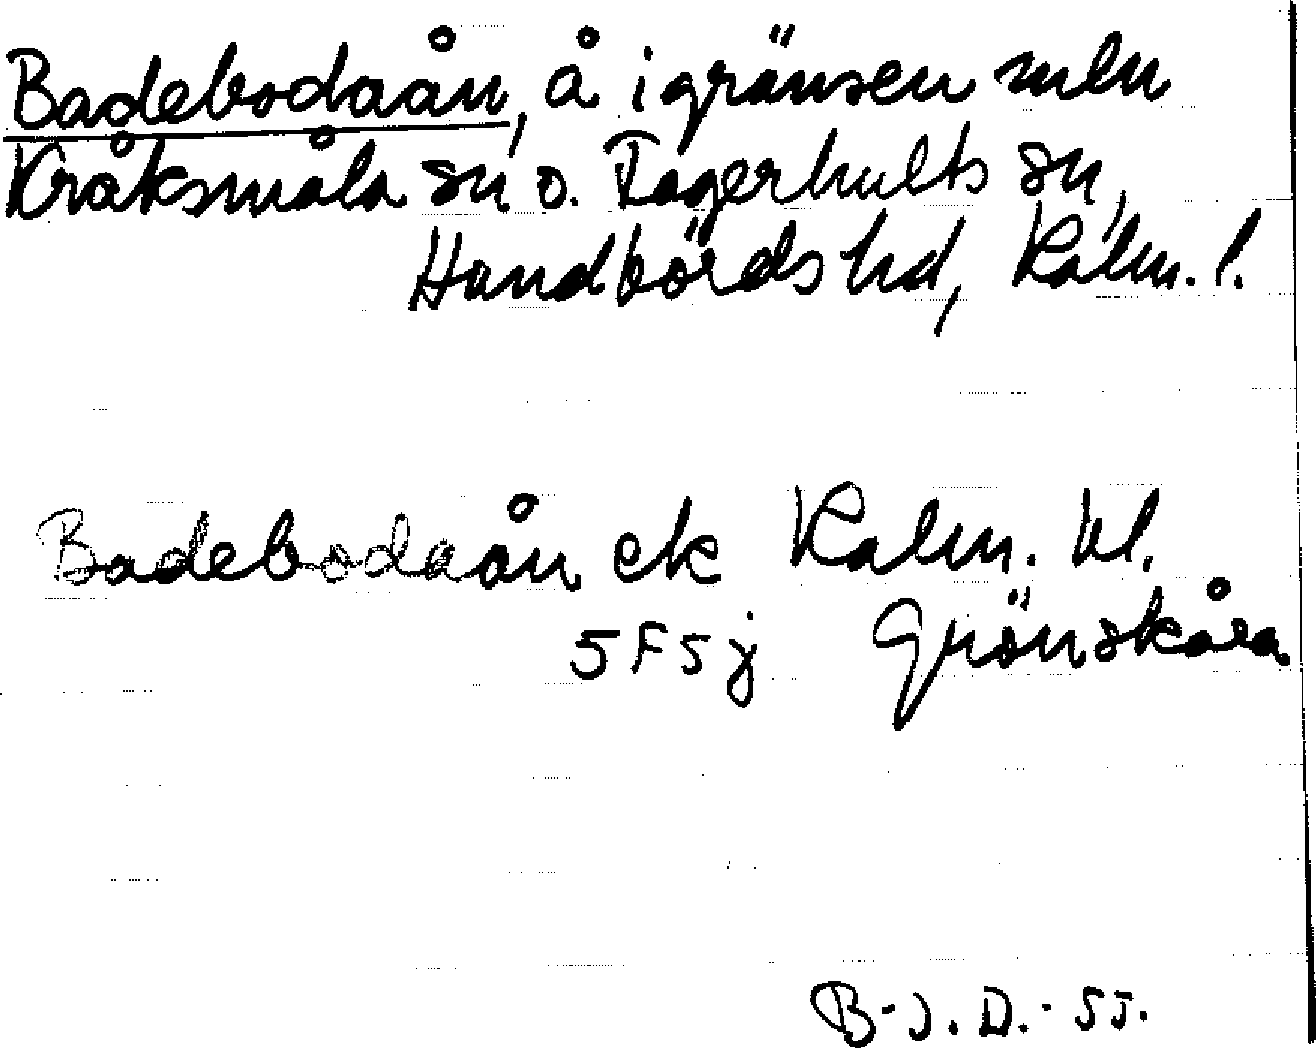 Badebodaån, å i gränsen mln
Kråksmåla sn o. Fagerhults sn,
Handbörds hd, Kalm. l.
Badebodaån ek Kalm. kl.
5F5j Grönskåra
B-J. D. - 55.